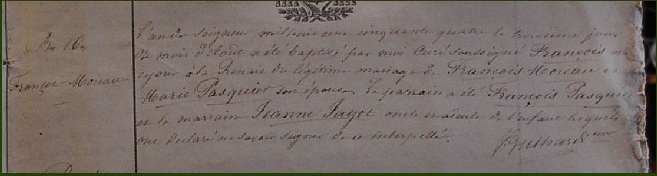 No 16
François Moreau
L'an du Seigneur mil huit cent cinquante quatre le troisième jour
du mois d'Août a été baptisé par moi Curé soussigné François né
ce jour à la de légitime mariage de François Moreau et
Marie Pasquier son épouse. Le parrain a été François Pasquier
et la marraine Jeanne oncle et aïeule de l'enfant lesquels
ont déclaré ne savoir signer de ce interpellé.